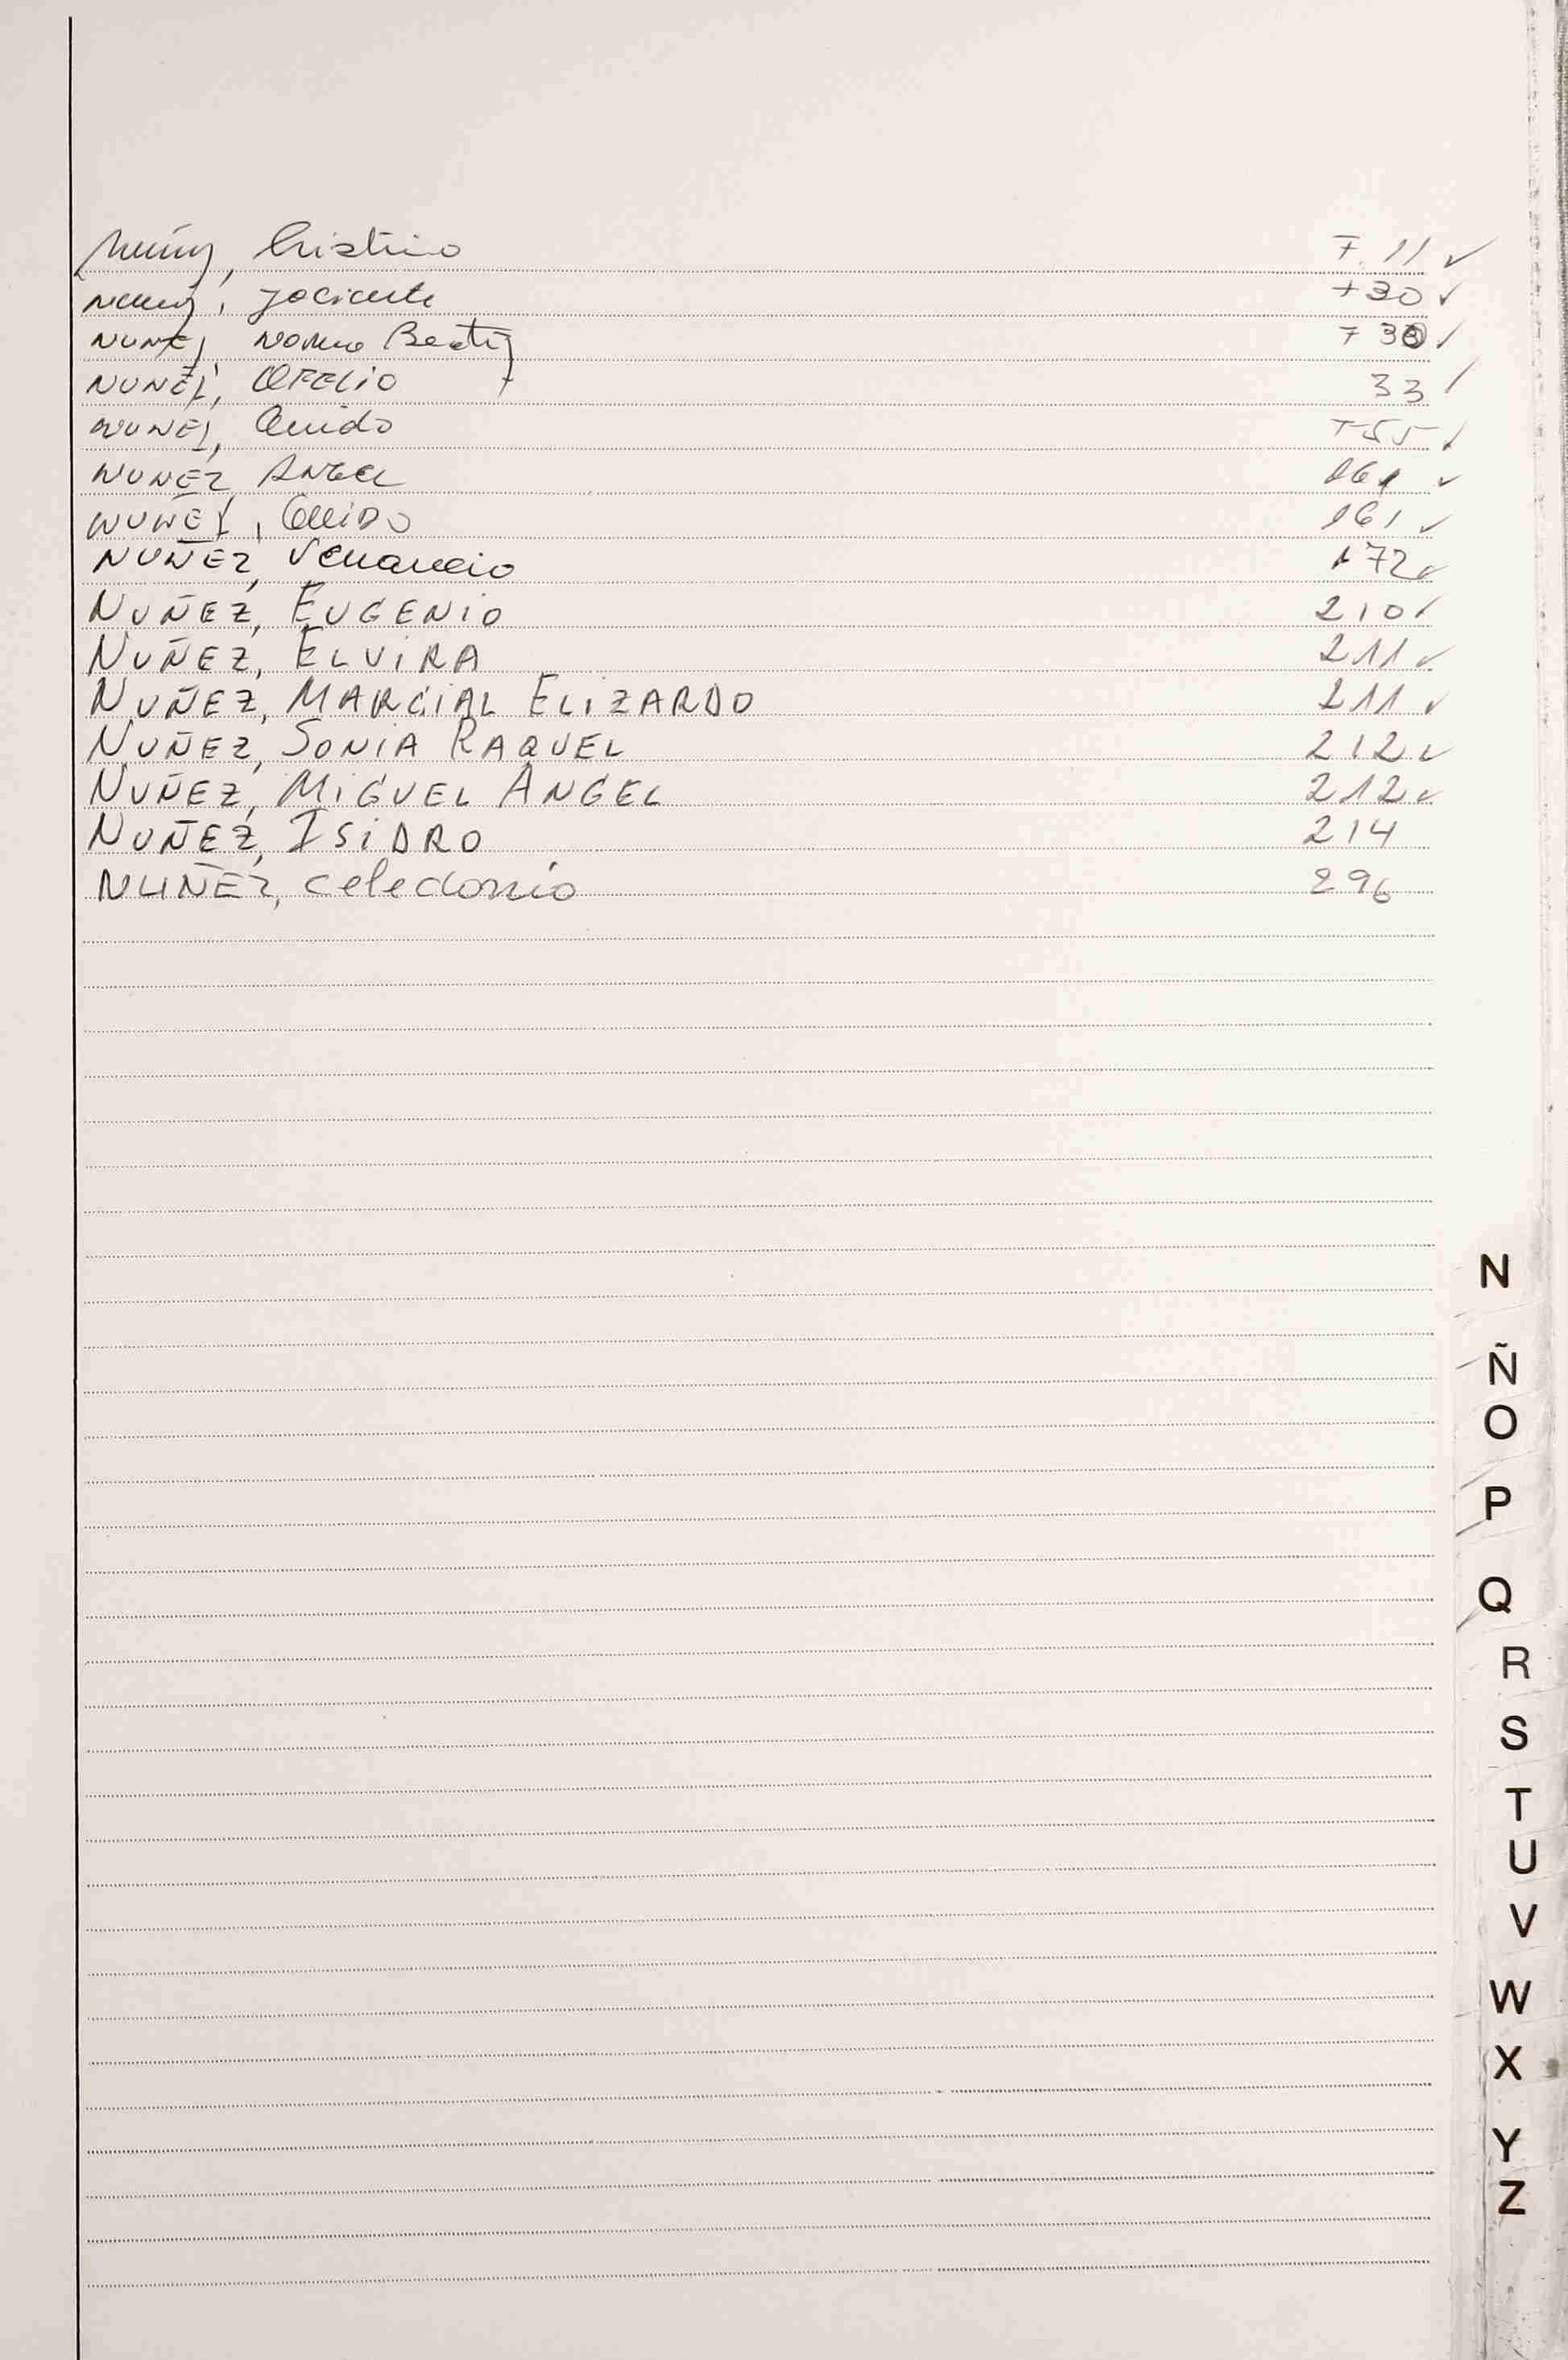 Nuñez, Cristino F. 11 ✓
Nuñez, Jacinta F 30 ✓
NUÑEZ Norma Beatriz F 30 ✓
NUÑEZ, OFELIO 33 ✓
NUÑEZ, Guido F 55 ✓
NUÑEZ, ANGEL 161 ✓
NUÑEZ, GUIDO 161 ✓
NUÑEZ, Venancio 172 ✓
NUÑEZ, EUGENIO 210 ✓
NUÑEZ, ELVIRA 211 ✓
NUÑEZ, MARCIAL ELIZARDO 211 ✓
NUÑEZ, SONIA RAQUEL 212 ✓
NUÑEZ, MIGUEL ANGEL 212 ✓
NUÑEZ, ISIDRO 214
NUÑEZ, celedonio 296
N
Ñ
O
P
Q
R
S
T
U
V
W
X
Y
Z